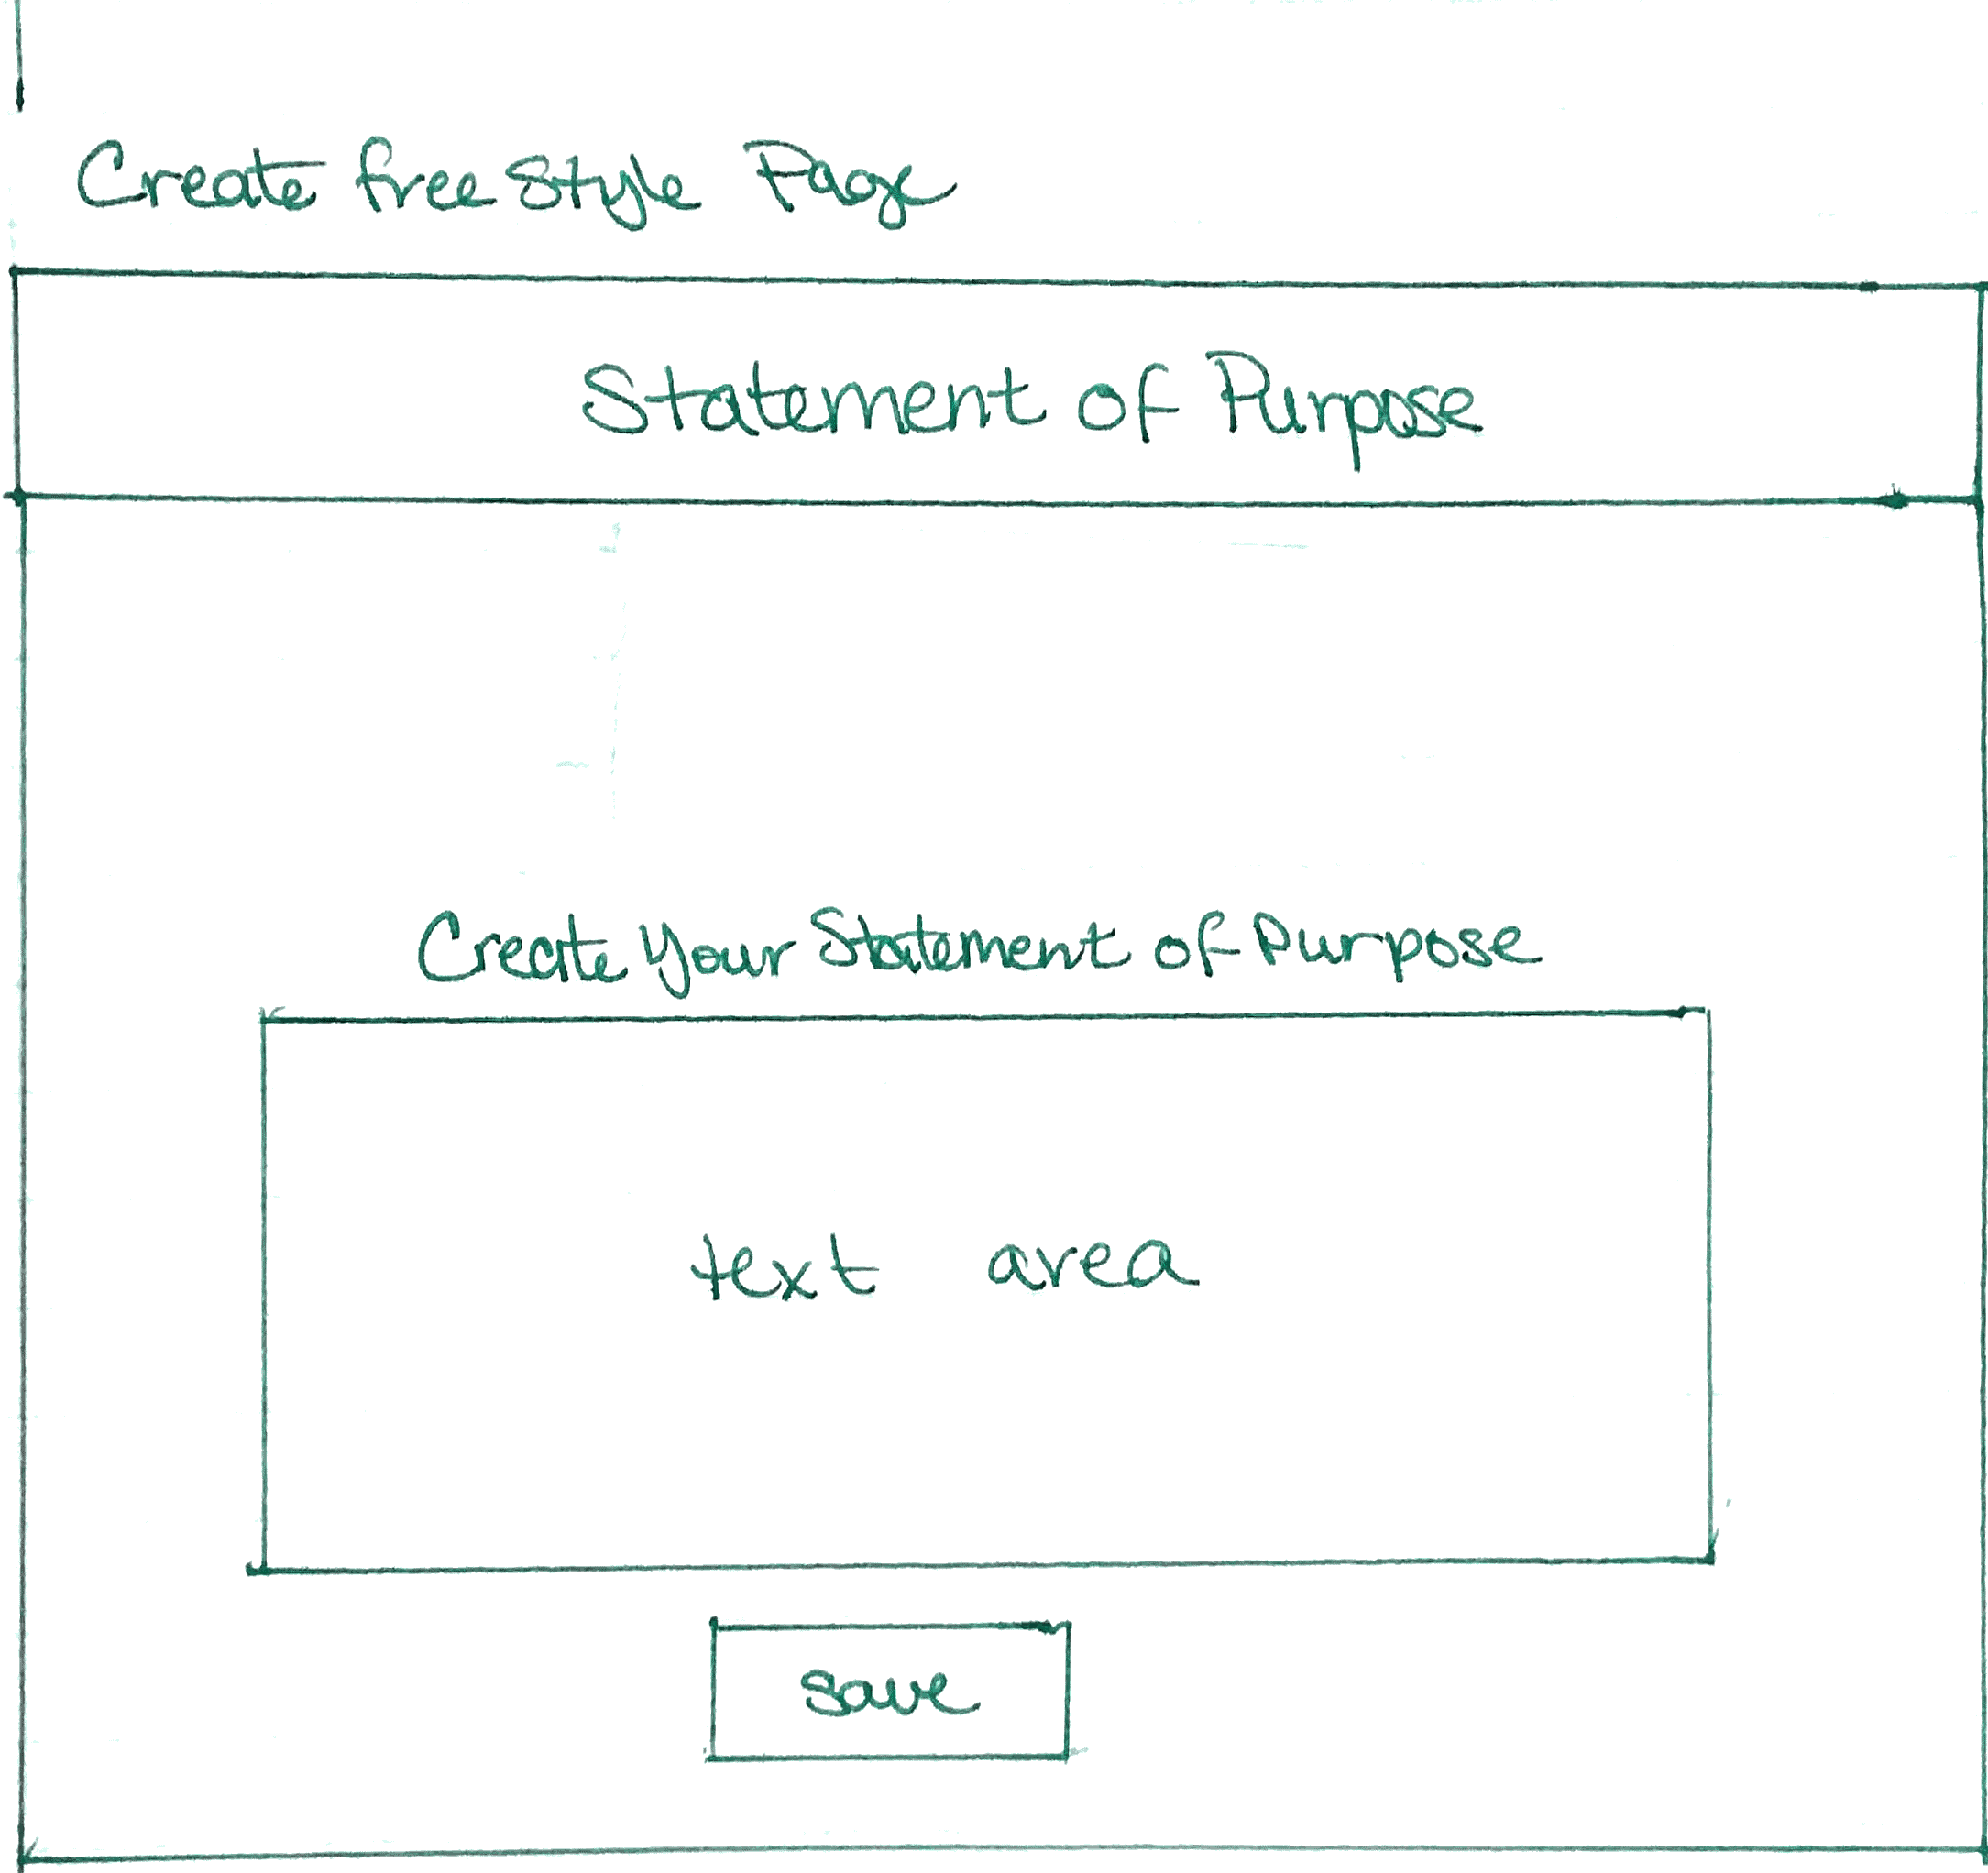 Create free Style Page
Statement of Purpose
Create Your Statement of Purpose
text area
save